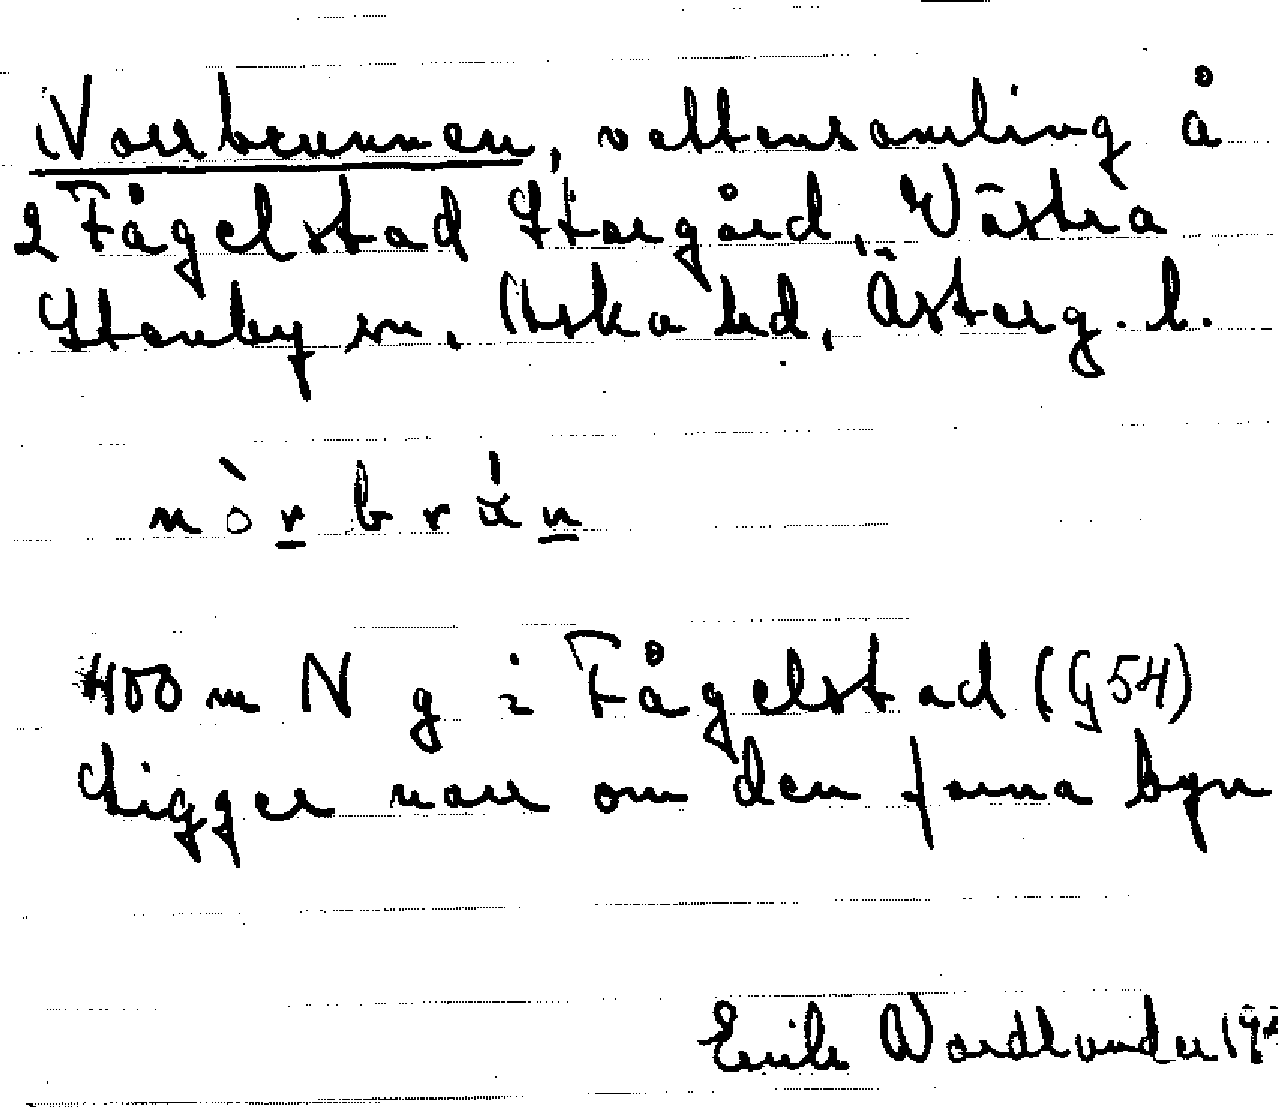 Norrbrunnen, vattensamling å
2 Fågelstad Storgård, Västra
Stenby sn. Aska hd, Österg. l.
nòr brún
400 m N g i Fågelstad (G54)
Ligger norr om den forna byn
Erik Nordlander 19